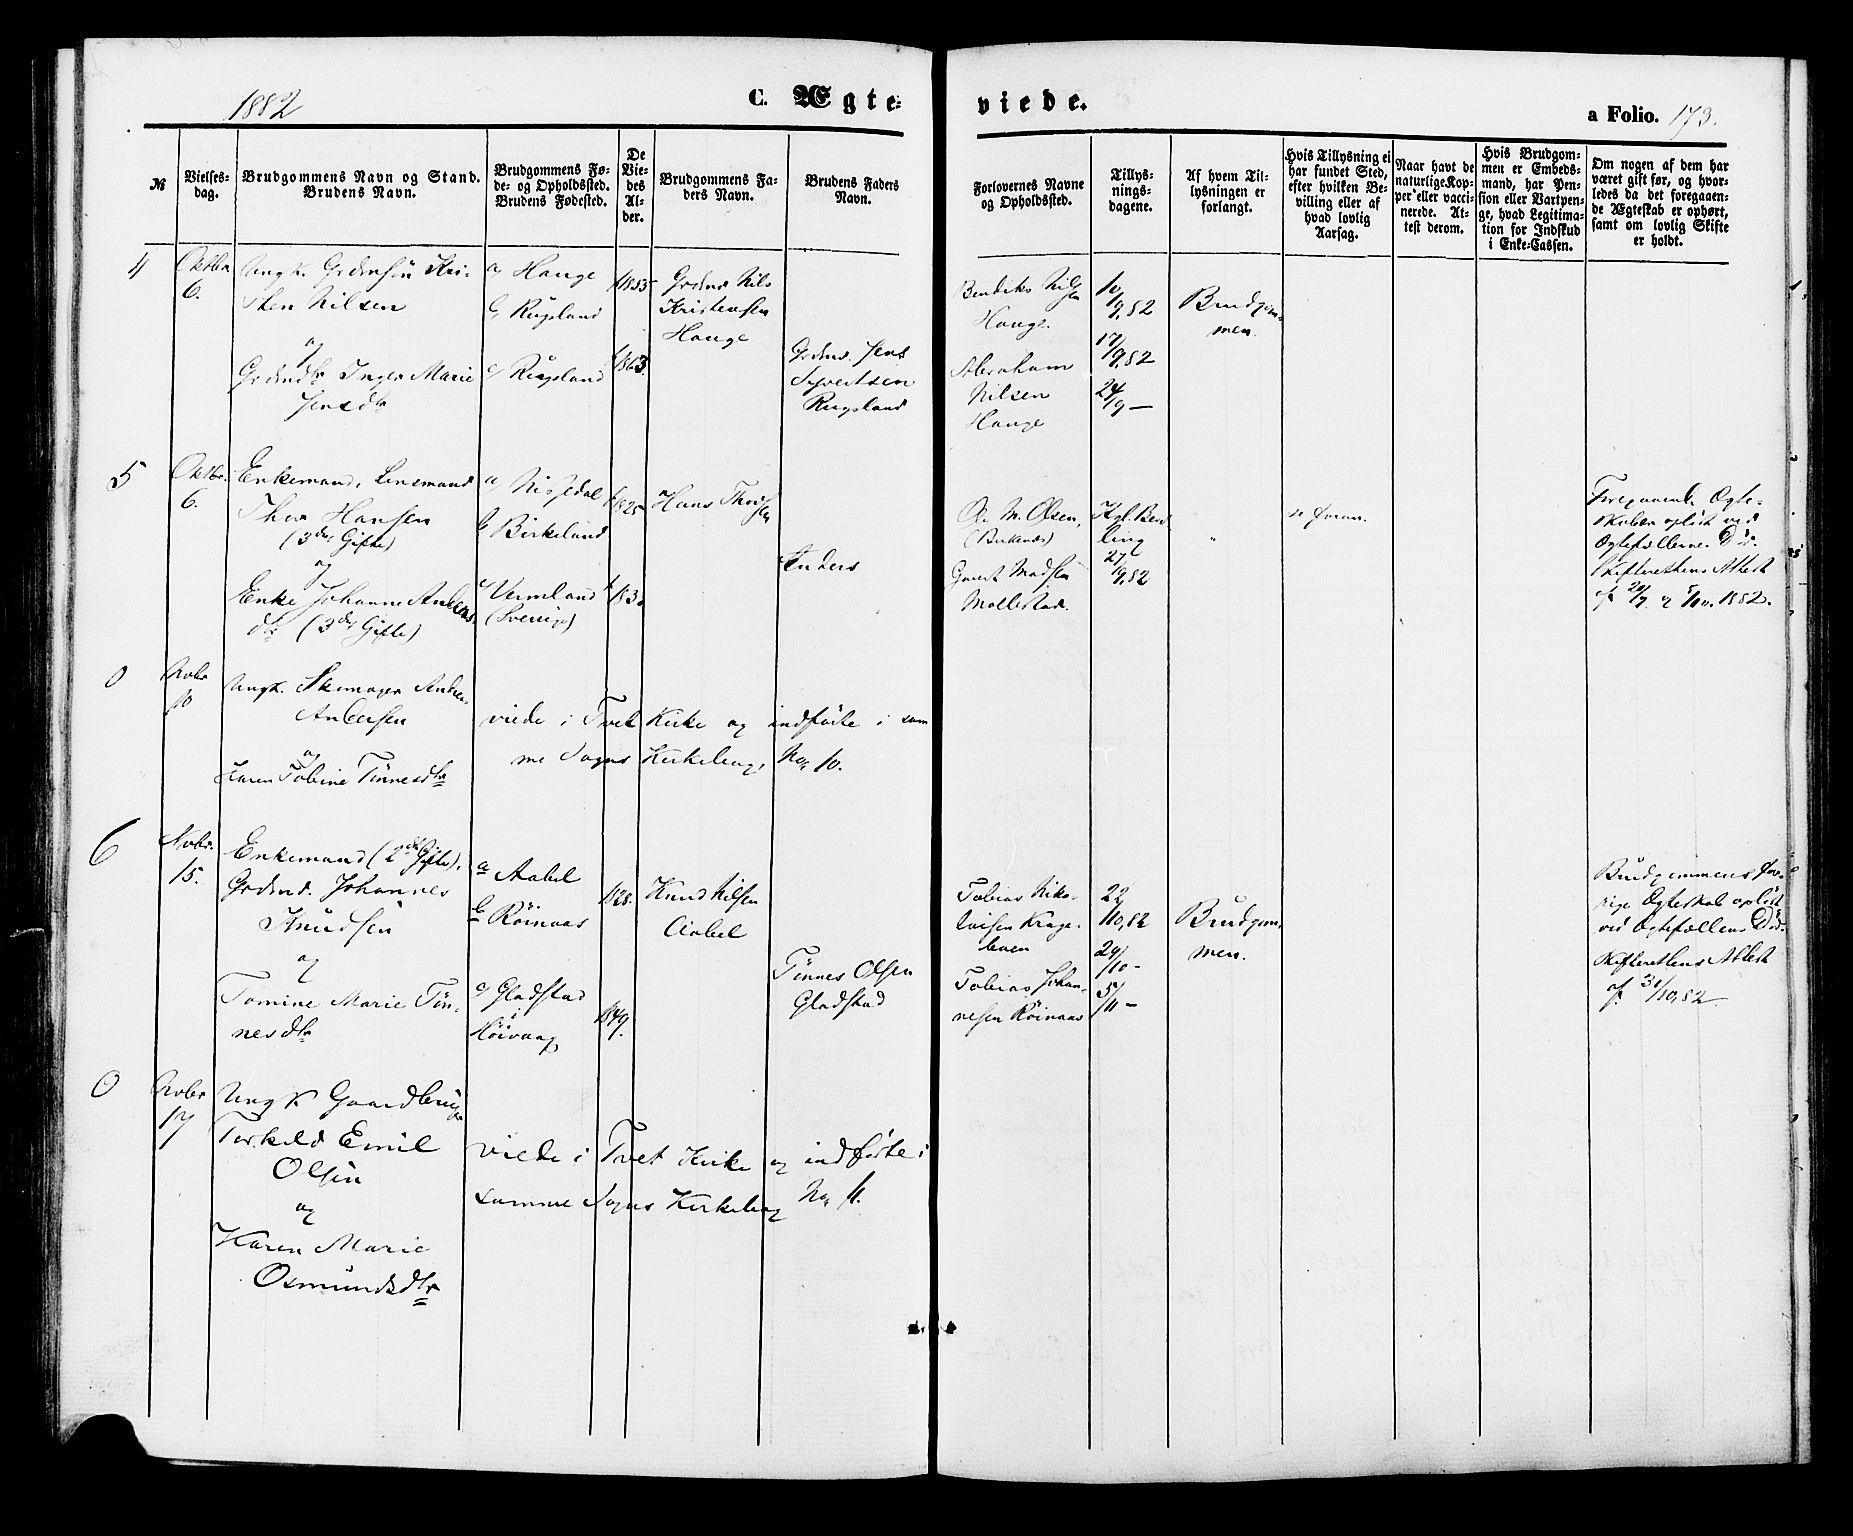 1882
C. Ægte=
viede.
a Folio. 173.
№
Vielses=
dag.
Brudgommens Navn og Stand.
Brudens Navn.
Brudgommens Fø=
de= og Opholdssted.
Brudens Fødested.
De
Vie=
des
Al=
der.
Brudgommens Fa=
ders Navn.
Brudens Faders
Navn.
Forlovernes Navne
og Opholdssted.
Tillys=
nings=
dagene.
Af hvem Til=
lysningen er
forlangt.
Hvis Tillysning ei
har fundet Sted,
efter hvilken Be=
villing eller af
hvad lovlig
Aarsag.
Naar havt de
naturlige Kop=
per eller vacci=
nerede. At=
test derom.
Hvis Brudgom=
men er Embeds=
mand, har Pen=
sion eller Vartpen=
ge, hvad Legitima=
tion for Indskud
i Enke=Cassen.
Om nogen af dem har
været gift før, og hvor=
ledes da det foregaaen=
de Ægteskab er ophørt,
samt om lovlig Skifte
er holdt.
4
Oktbr.
6.
Ungk. Grdmsøn Kri-
sten Nilsen
og
Grdmdtr Inger Marie
Jensdtr
a Hauge
b Rugsland
c Rugsland
1855
1863
Grdmd Nils
Kristensen
Hauge
Grdmd. Jens
Syvertsen
Rugsland
Bendiks Nilsen
Hauge.
Abraham
Nilsen
Hauge
10/9,82
17/9,82
24/9 —
Brudgom-
men.
5
Oktbr.
6.
Enkemand, Lensmand
Thor Hansen
(3die Gifte)
og
Enke Johanne Anders
dtr (3die Gifte)
a Nissedal
b Birkeland
c Vermland
(Sverige)
1825
183
Hans Thorsen
Anders
O. M. Olsen,
(Birkenæs)
Gunst Madsen
Mollestad.
Kgl. Bevil
ling
27/9,82
"
se foran.
Foregaaende Ægte-
skaber opløst ved
Ægtefællernes Død.
Skifterettens Attest
af 20/9 og 5/10. 1882.
0
Novbr
10
Ungk. Skomager Anders
Andersen
og
Karen Tobine Tönnesdtr
viede i Tvet Kirke og indförte i sam
me Sogns Kirkebog, No. 10.
6
Novbr.
15.
Enkemand (2den Gifte).
Grdmd. Johannes
Knudsen
og
Tomine Marie Tön-
nesdtr
a Aabel
b Röinaas
c Gladstad
i
Höivaag
1828.
1849.
Knud Nilsen
Aabel
Tönnes Olsen
Gladstad
Tobias Niko-
laisen Krage-
boen
Tobias Johan-
nesen Röinaas
22/10,82
29/10-
5/11-
Brudgom-
men.
Brudgommens for-
rige Ægteskab opløst
ved Ægtefællens Död.
Skifterettens Attest
af 31/10,82
0
Novbr
17
Ungk Gaardbruger
Torkild Emil
Olsen
og
Karen Marie
Osmundsdtr
viede i Tvet Kirke og indförte i
samme Sogns Kirkebog No. 11.